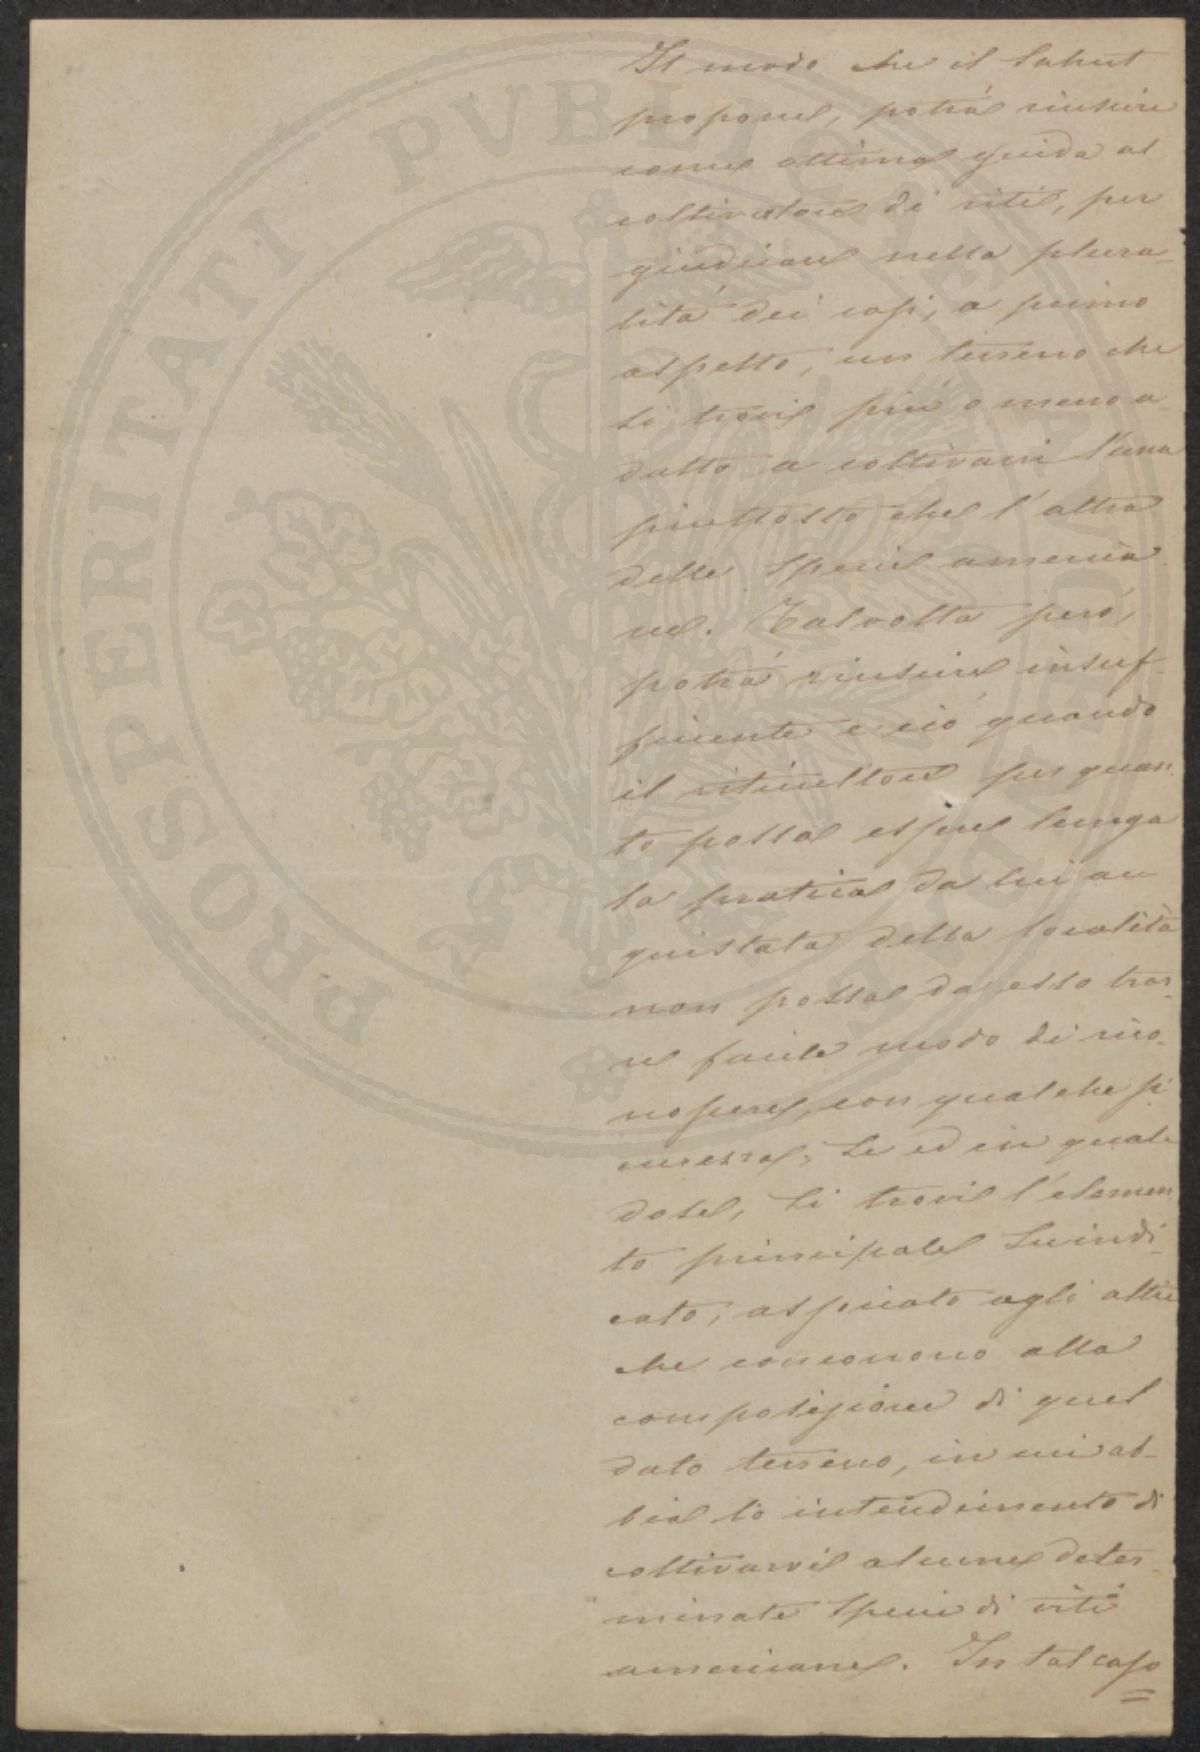 Il modo che il Sahut
propone, potrà riuscire
come ottima guida al
coltivatore di viti, per
giudicare nella plura-
lità dei casi, a primo
aspetto, un terreno che
si trovi più o meno a-
datto a coltivarvi l'una
piuttosto che l'altra
delle specie america-
ne. Talvolta però,
potrà riuscire insuf-
ficiente e ciò quando
il viticultore per quan-
to possa essere lunga
la pratica da lui ac-
quistata della località
non possa da esso trar-
ne facile modo di rico-
noscere, con qualche si-
curezza, se ed in quale
dose, si trovi l'elemen-
to principale suindi-
cato, associato agli altri
che concorrono alla
composizione di quel
dato terreno, in cui ab-
bia lo intendimento di
coltivarvi alcune deter-
minate specie di viti
americane. In tal caso
PROSPERITATI PVBLICAE